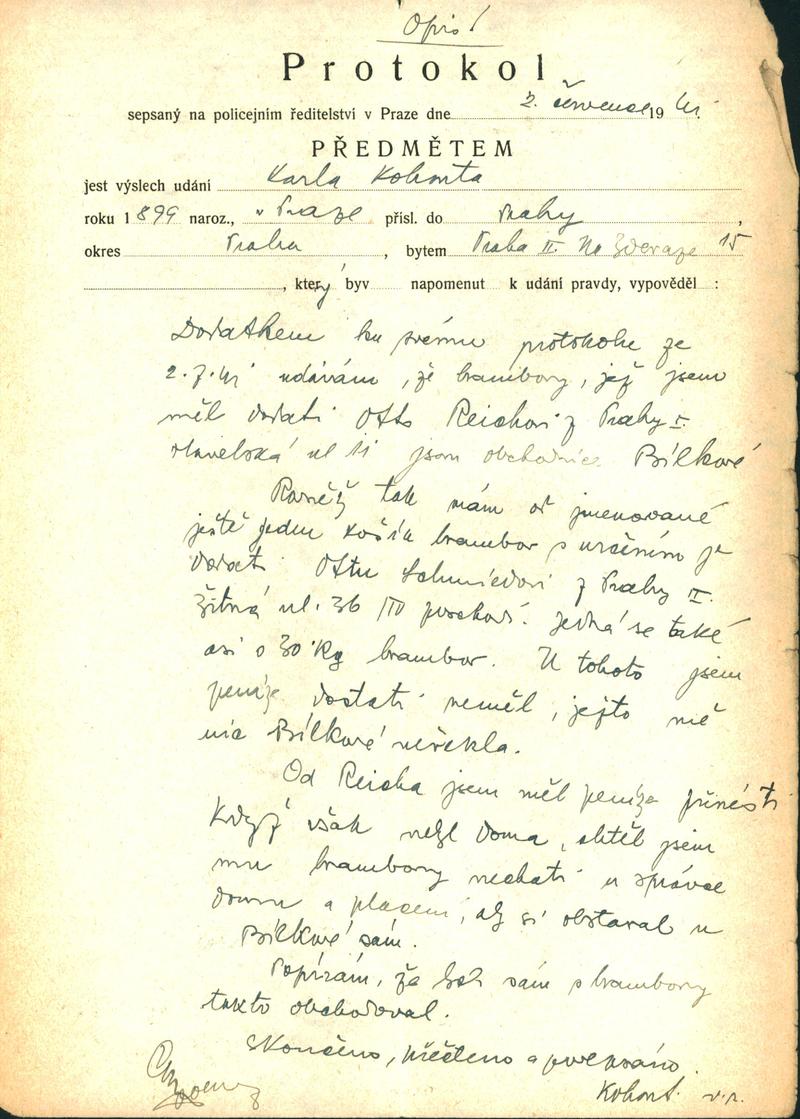 Opis!
Protokol
sepsaný na policejním ředitelství v Praze dne 2. července 1941.
PŘEDMĚTEM
jest výslech udání Karla Kohouta
roku 1899 naroz., v Praze přísl. do Prahy,
okres Praha, bytem Praha II. Na Zderaze 15
, který byv napomenut k udání pravdy, vypověděl :
Dodatkem ku svému protokolu ze
2.7.41 udávám, že brambory, jež jsem
měl dodati Otto Reichovi z Prahy I.
Havelská ul 11 jsou obchodnice Bílkové
Rovněž tak mám od jmenované
ještě jeden košík brambor s určením je
dodati Ottu Schmiedovi z Prahy II.
Žitná ul. 36 /IV poschodí. Jedná se také
asi o 30 kg brambor. U tohoto jsem
peníze dostati neměl, ježto mě
nic Bílkové neřekla.
Od Reicha jsem měl peníze přinésti
Když však nebyl doma, chtěl jsem
mu brambory nechati u správce
domu a placení, aby si obstaral u
Bílkové sám.
Popírám, že bych sám s brambory
takto obchodoval.
Skončeno, přečteno a podepsáno.
Kohout. v.r.